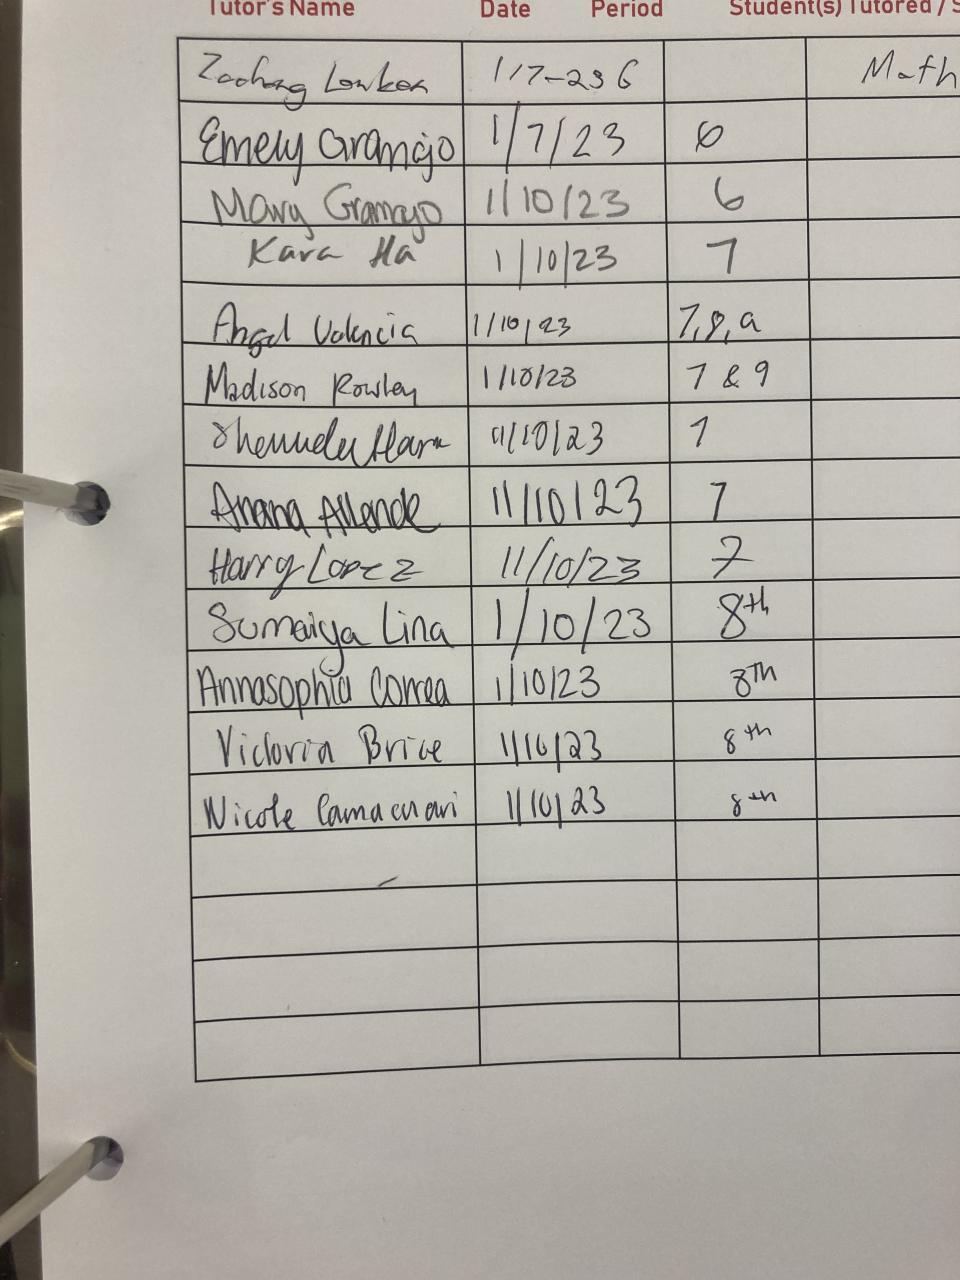 Tutor's Name Date Period Student(s) Tutored / S
1/7-23 6 Math
Emely Gramajo 1/7/23 6
Gramajo 1/10/23 6
Kara Ha 1/10/23 7
Angel Valencia 1/10/23 7,8,
Madison Rowley 1/10/23 7 & 9
11/10/23 7
Allende 11/10/23 7
Harry Lopez 11/10/23 7
Sumaiya Lina 1/10/23 8th
Annasophia Correa 1/10/23 8TH
Victoria Brice 1/10/23 8th
Nicole 1/10/23 8th